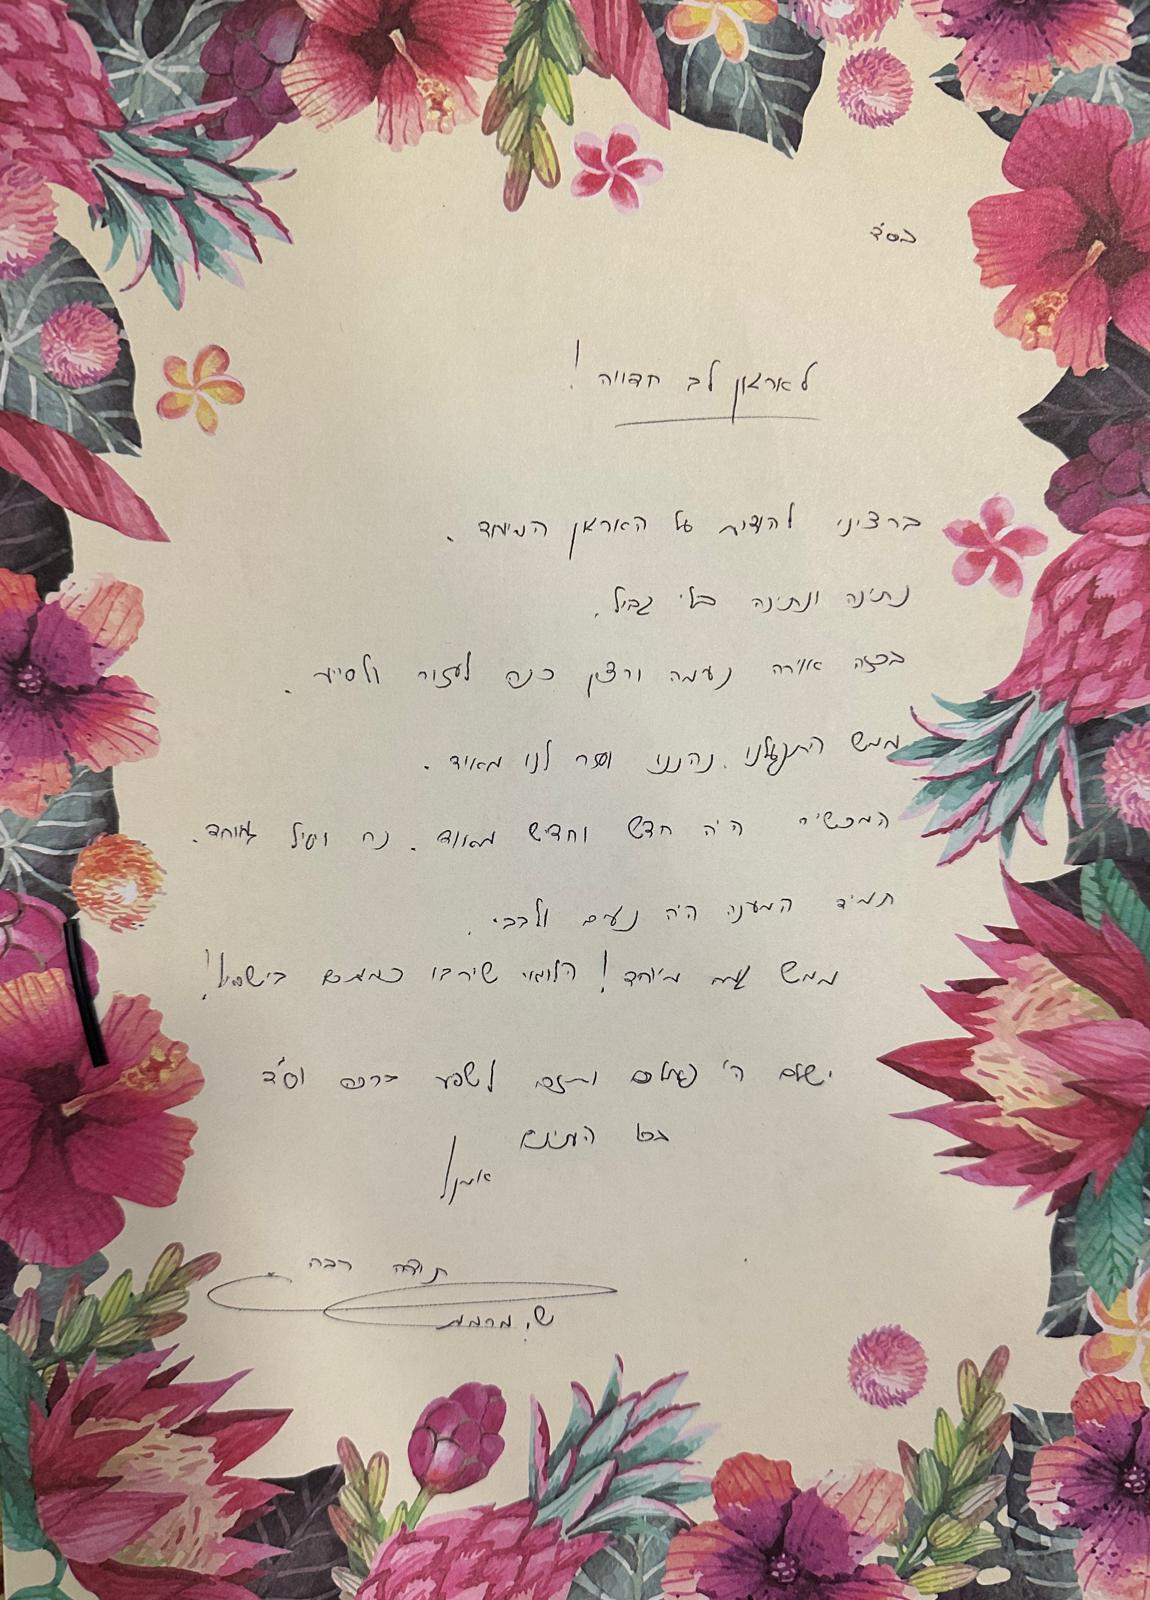 בס"ד
לארגון לב חדווה!
ברצוני להודות על הארגון המיוחד.
נתינה ונתינה בלי גבול.
בכזה אוירה נעימה ורצון כנה לעזור ולסייע.
ממש התפעלנו. נהננו ועזר לנו מאוד.
המכשיר היה חדש וחדיש מאוד. נח ויעיל במיוחד.
תמיד המענה היה נעים ולבבי.
ממש מיוחד! הלואי שירבו כמותכם בישראל!
ישלם ה' פעלכם ותזכו לשפע ברכה וס"ד
בכל העתים
אמן!
תודה רבה
ש.